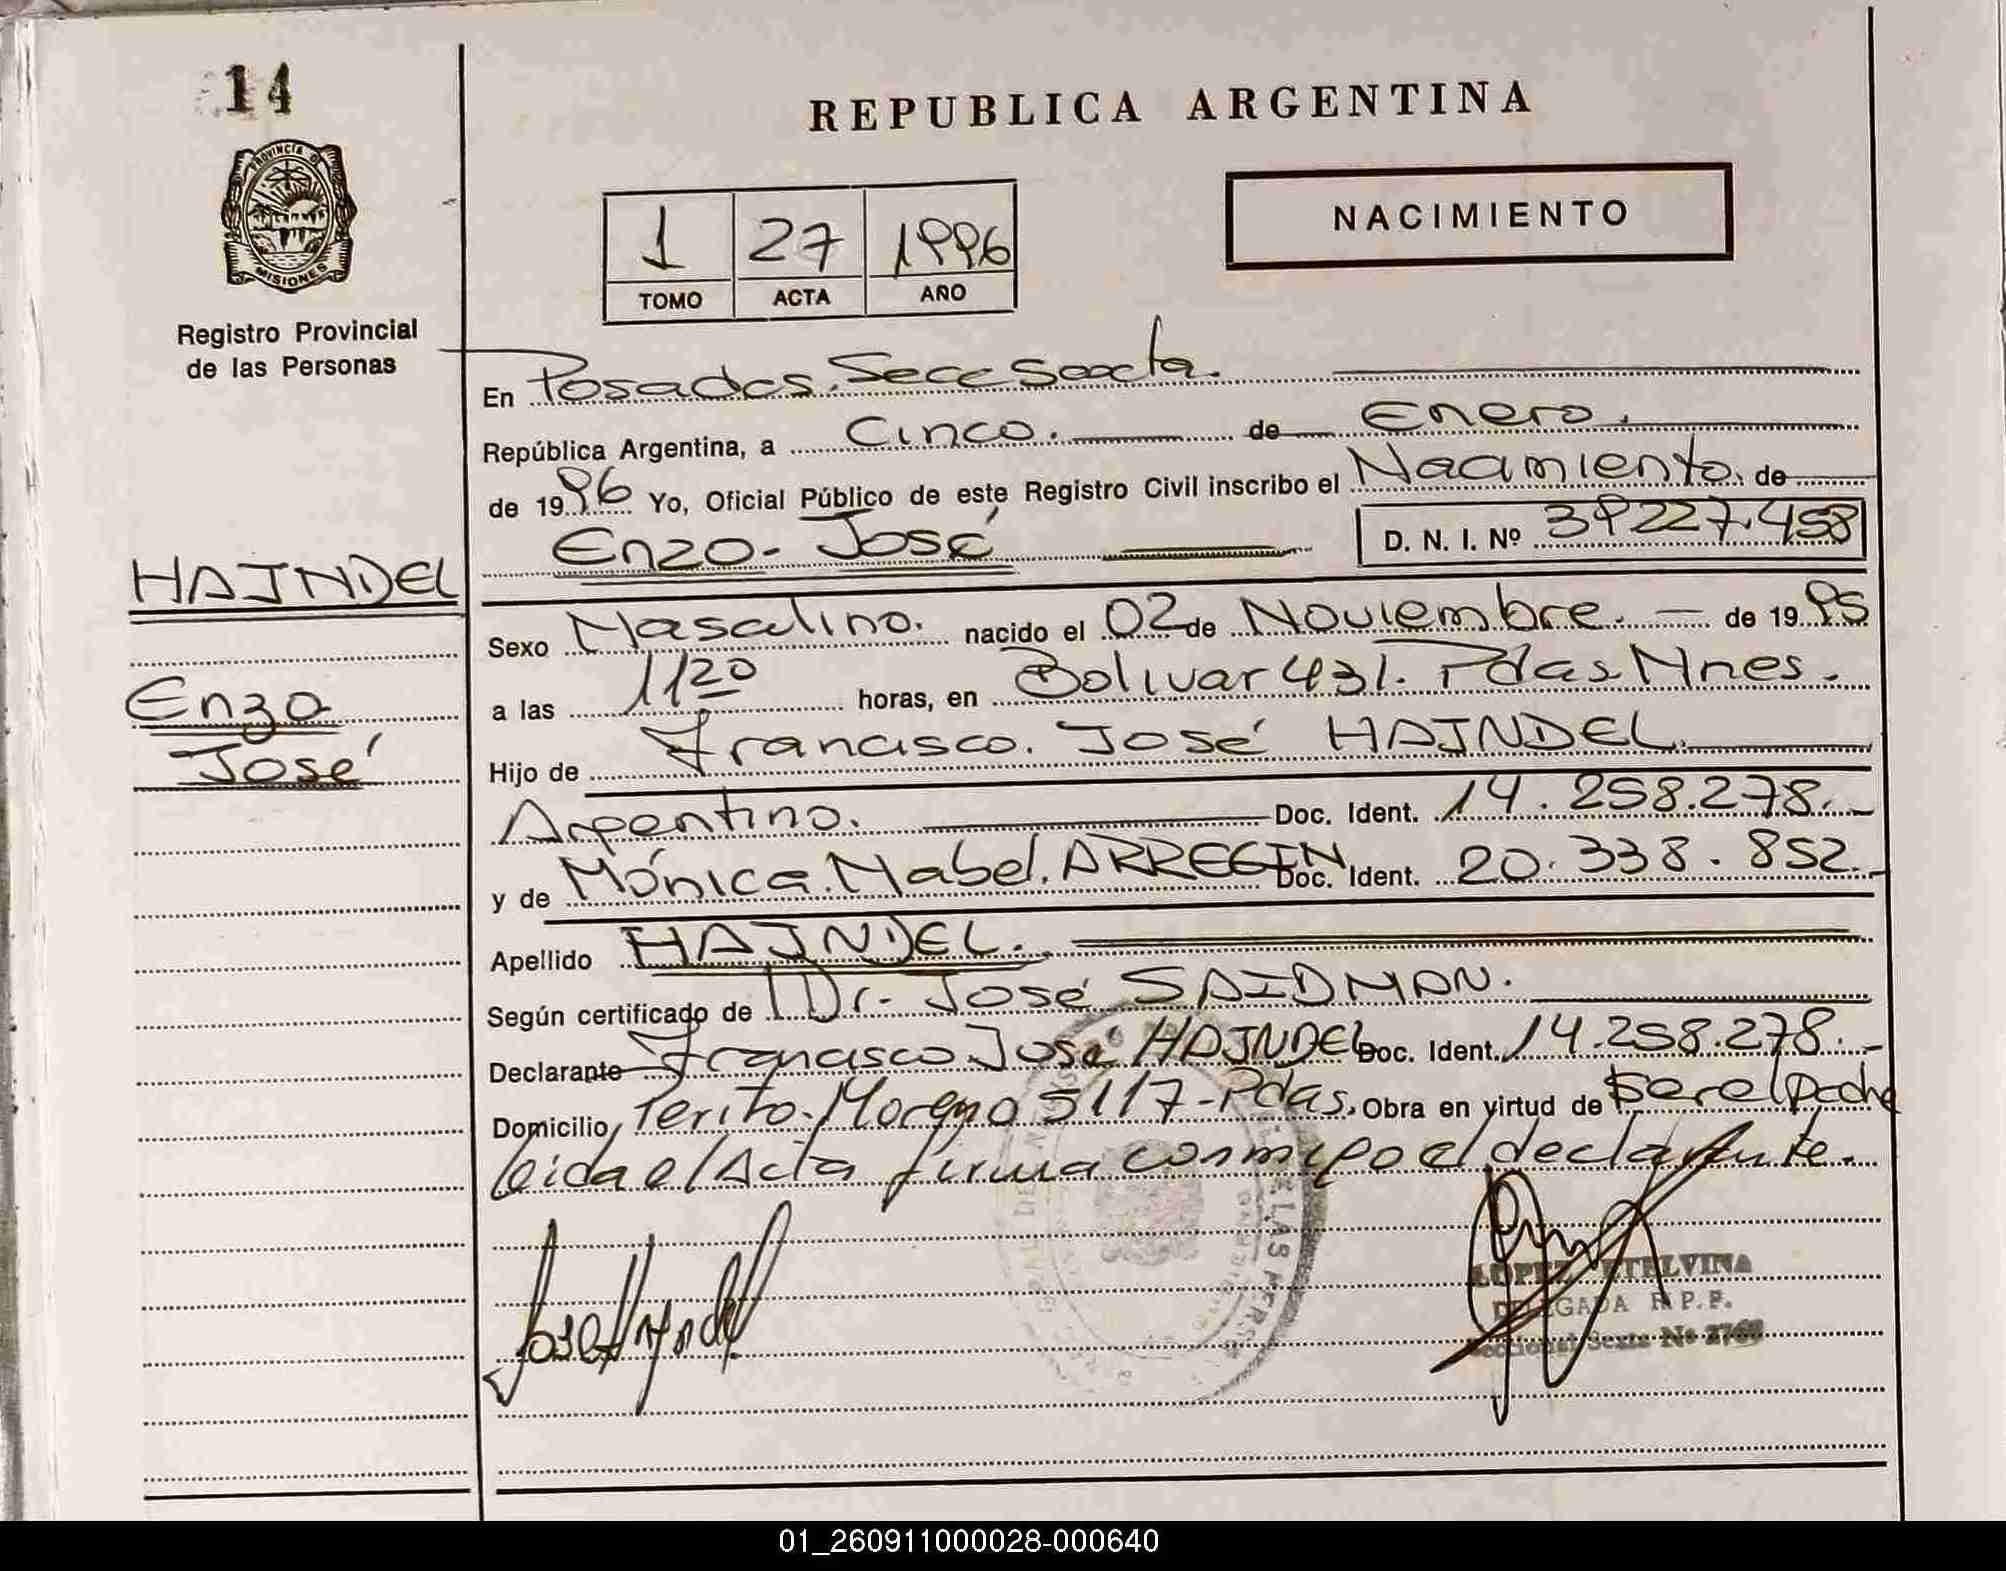 14
REPUBLICA ARGENTINA
PROVINCIA D
MISIONES
Registro Provincial
de las Personas
1 27 1996
TOMO ACTA AÑO
NACIMIENTO
En Posadas. Secc Sexta.
República Argentina, a Cinco. de Enero.
de 1996 Yo, Oficial Público de este Registro Civil inscribo el Nacimiento. de
Enzo- José D. N. I. Nº 39227.458
HAJNDEL
Enzo
José
Sexo Masculino. nacido el 02 de Noviembre. de 1995
a las 11 20 horas, en Bolivar 431. Pdas Mnes.
Hijo de Francisco. José HAJNDEL.
Argentino. Doc. Ident. 14.258.278.
y de Mónica. Mabel. ARREGIN Doc. Ident. 20.338.852.
Apellido HAJNDEL.
Según certificado de Dr. José SAIDMAN.
Declarante Francisco José HAJNDEL Doc. Ident. 14.258.278.
Domicilio Perito. Moreno 5117-Pdas. Obra en virtud de ser el padre
leida el Acta firma conmigo el declarante.
Jose Hajndel
LOPEZ ETELVINA
DELEGADA R.P.P.
Seccional Sexta Nº
01_260911000028-000640